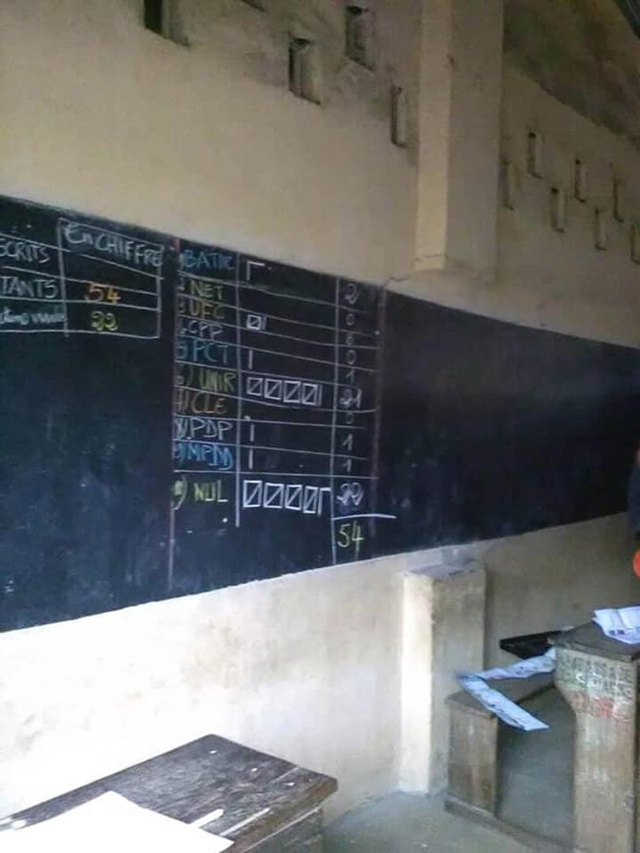 En CHIFFRE
SCRITS
TANTS 54
22
BATIR 2
NET 0
UFC 6
CPP 0
5) PCT 1
6) UNIR 21
7) CLE 0
8) PDP 1
9) MPDD 1
NUL 22
54